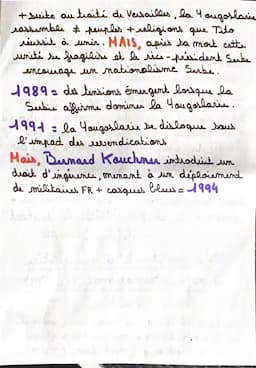 + suite au traité de Versailles, la Yougoslavie
rassemble ≠ peuples + religions que Tito
réussit à unir. MAIS, après sa mort cette
unité se fragilise et le vice-président Serbe
encourage un nationalisme Serbe.
1989 = des tensions émergent lorsque la
Serbie affirme dominer la Yougoslavie.
1991 = la Yougoslavie se disloque sous
l'impact des revendications
Mais, Bernard Kouchner introduit un
droit d'ingérence, menant à un déploiement
de militaires FR + casques bleus = 1994